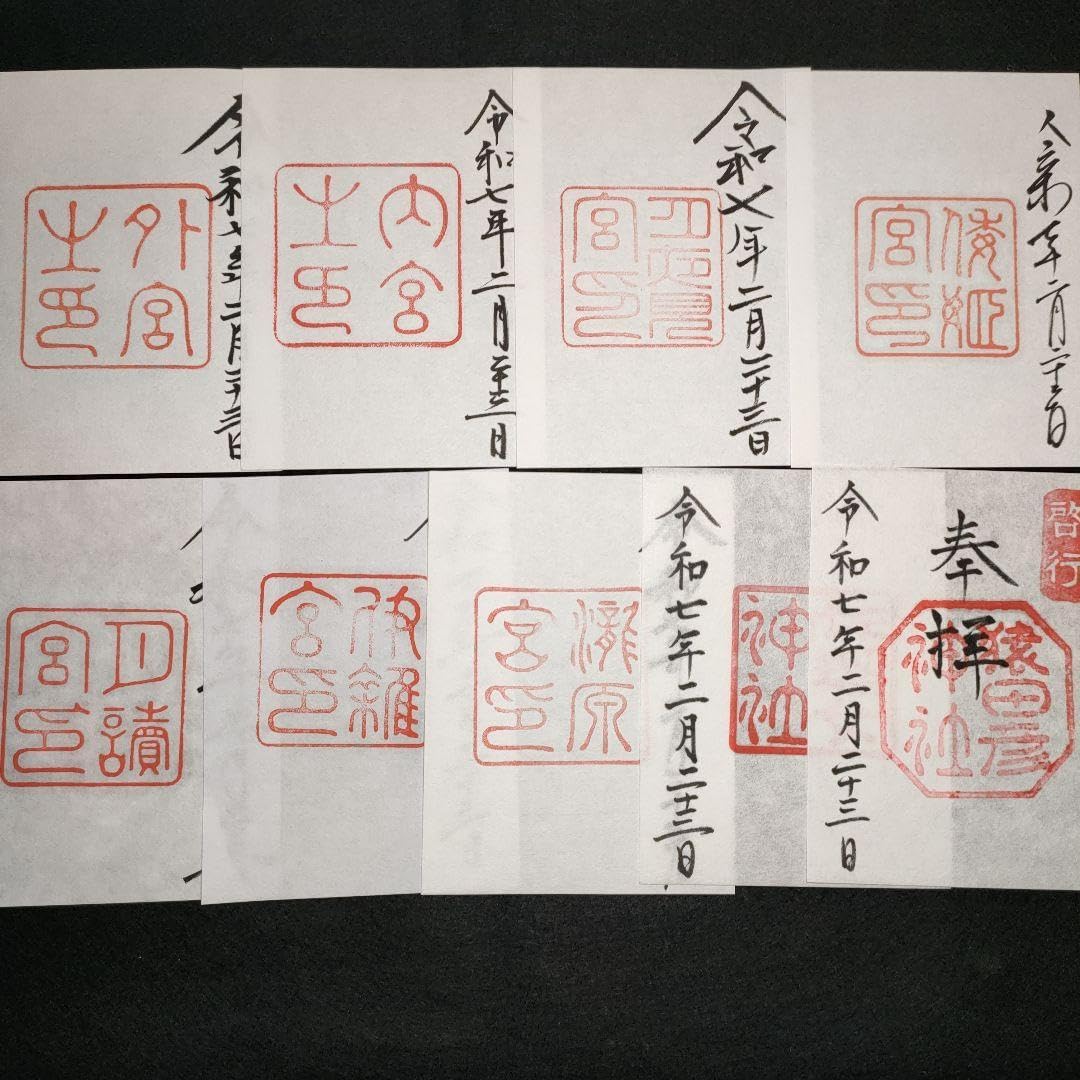 令和七年二月二十三日
外宮
之印
令和七年二月二十三日
内宮
之印
令和七年二月二十三日
月夜見
宮印
年二月二十三日
倭姫
宮印
月讀
宮印
伊雜
宮印
瀧原
宮印
神社
令和七年二月二十三日
啓行
奉拝
猿田彦
神社
令和七年二月二十三日